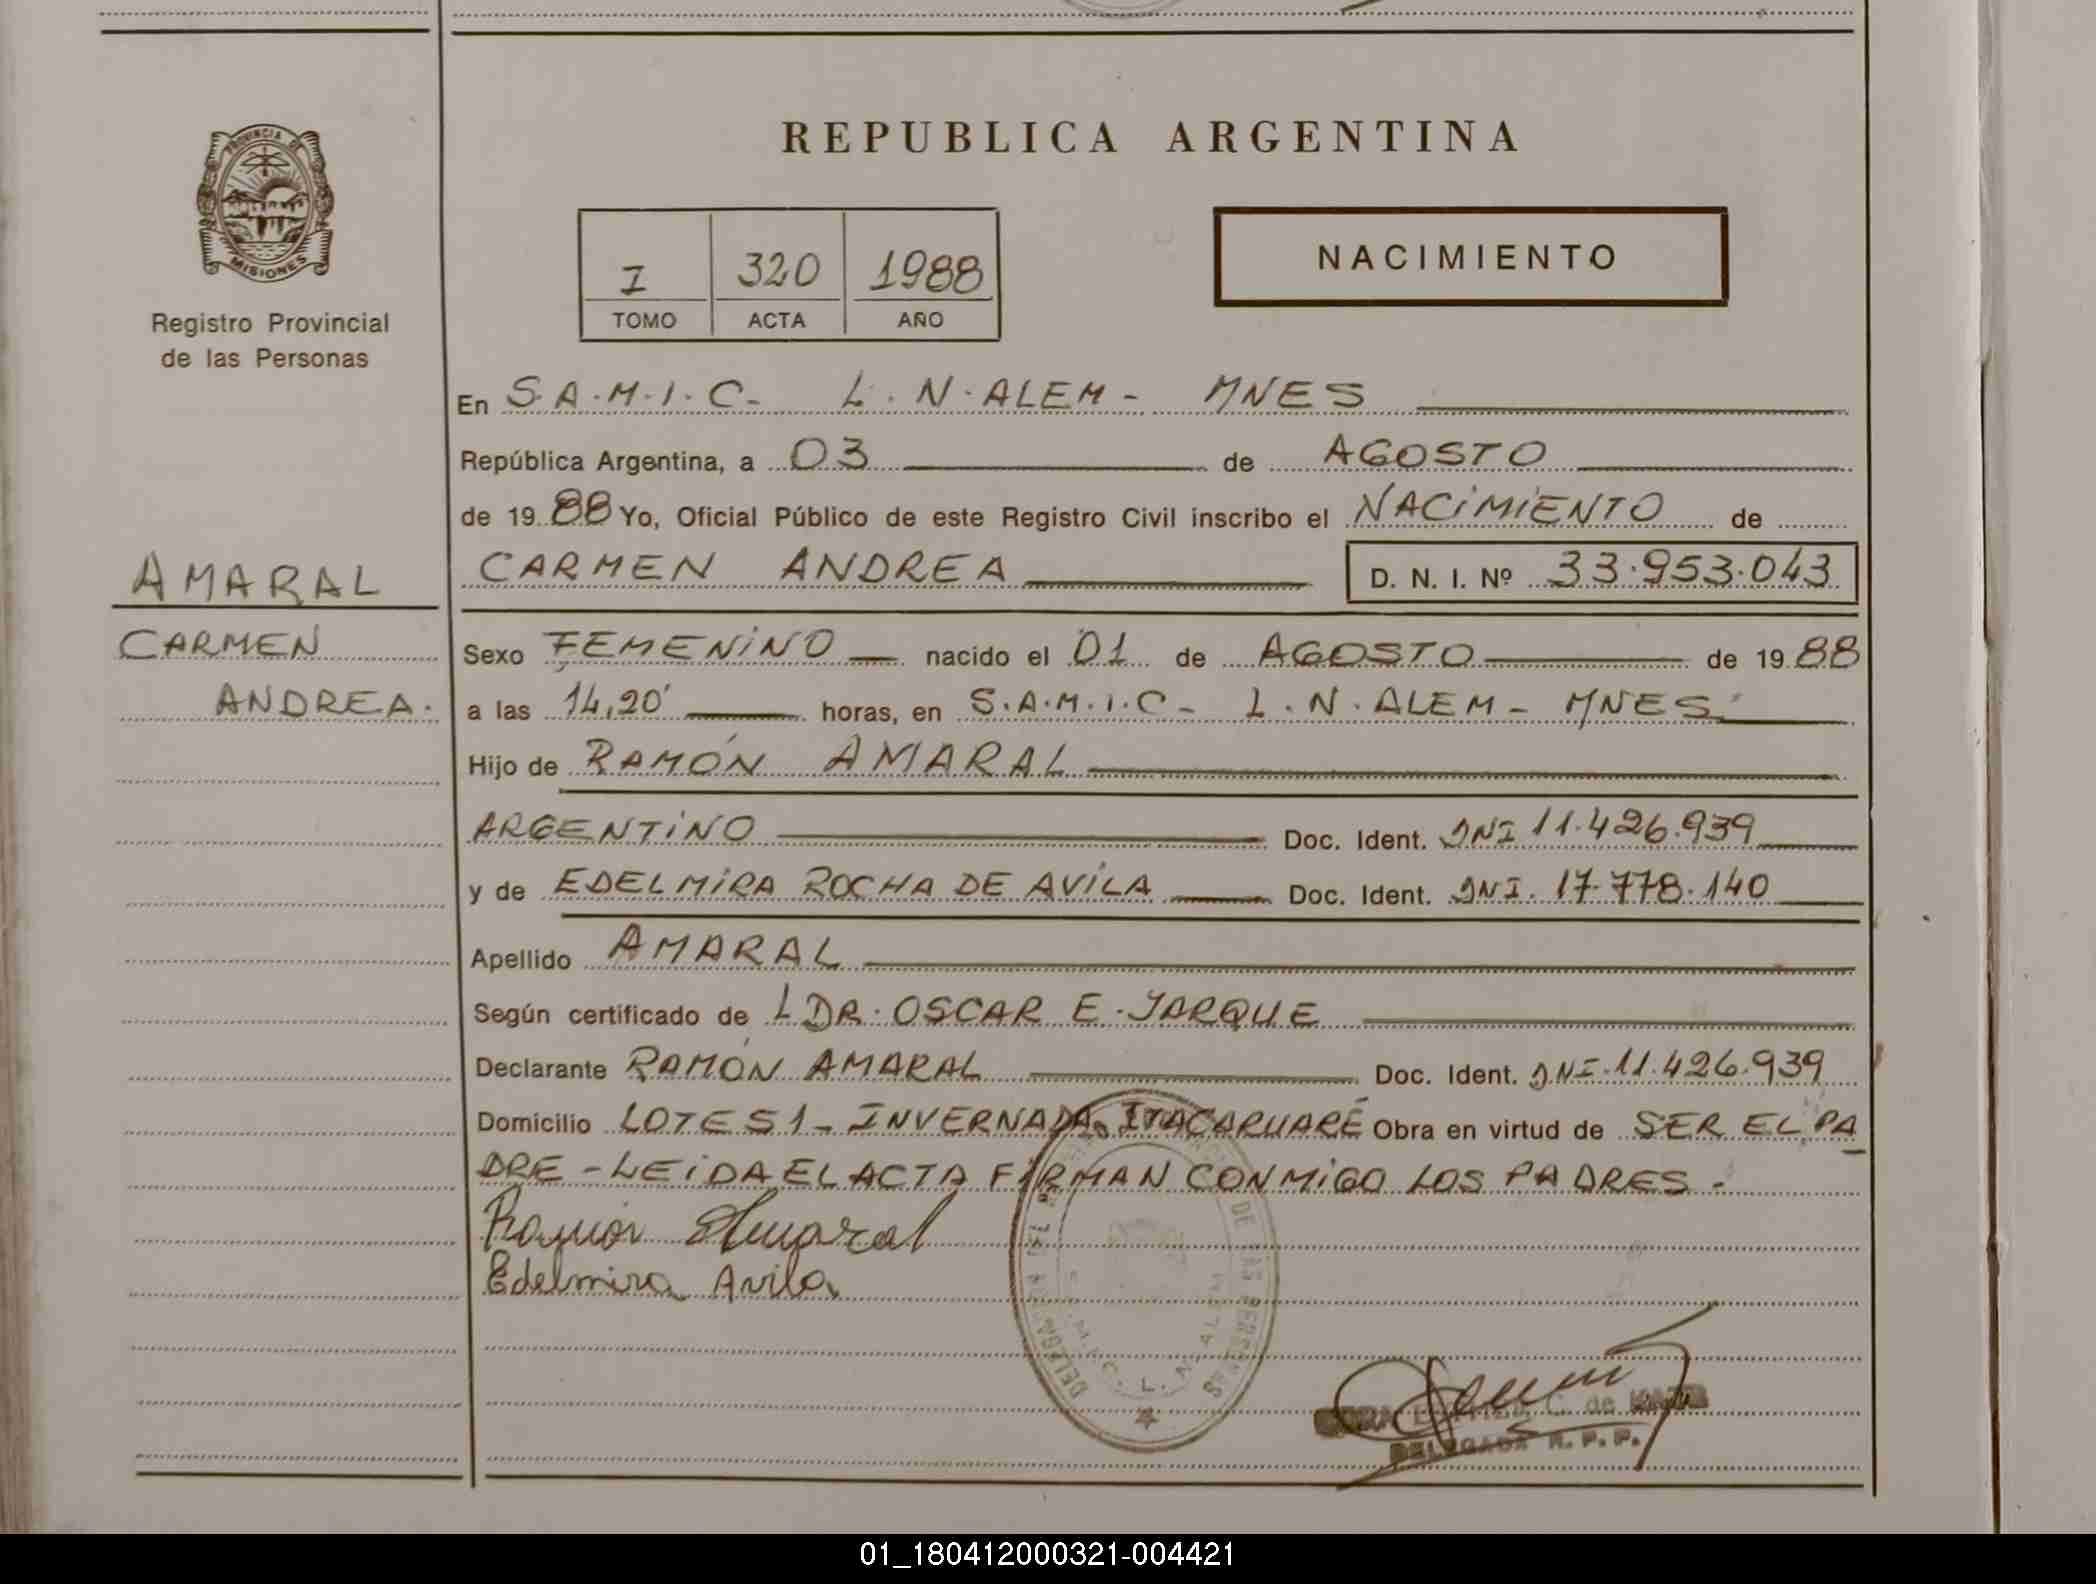 REPUBLICA ARGENTINA
PROVINCIA DE
MISIONES
Registro Provincial
de las Personas
I 320 1988
TOMO ACTA AÑO
NACIMIENTO
En S.A.M.I.C- L.N.ALEM- MNES
República Argentina, a 03 de AGOSTO
de 1988 Yo, Oficial Público de este Registro Civil inscribo el NACIMIENTO de
CARMEN ANDREA D. N. I. Nº 33.953.043
AMARAL
CARMEN
ANDREA.
Sexo FEMENINO nacido el 01 de AGOSTO de 1988
a las 14,20' horas, en S.A.M.I.C- L.N.ALEM- MNES
Hijo de RAMÓN AMARAL
ARGENTINO Doc. Ident. DNI 11.426.939
y de EDELMIRA ROCHA DE AVILA Doc. Ident. DNI. 17.778.140
Apellido AMARAL
Según certificado de L DR. OSCAR E. JARQUE
Declarante RAMÓN AMARAL Doc. Ident. DNI.11.426.939
Domicilio LOTE 51- INVERNADA ITACARUARÉ Obra en virtud de SER EL PA
DRE - LEIDA EL ACTA FIRMAN CONMIGO LOS PADRES.
Ramón Amaral
Edelmira Avila
S.A.M.I.C. L. N. ALEM
C. de
DELEGADA R. P. P.
01_180412000321-004421